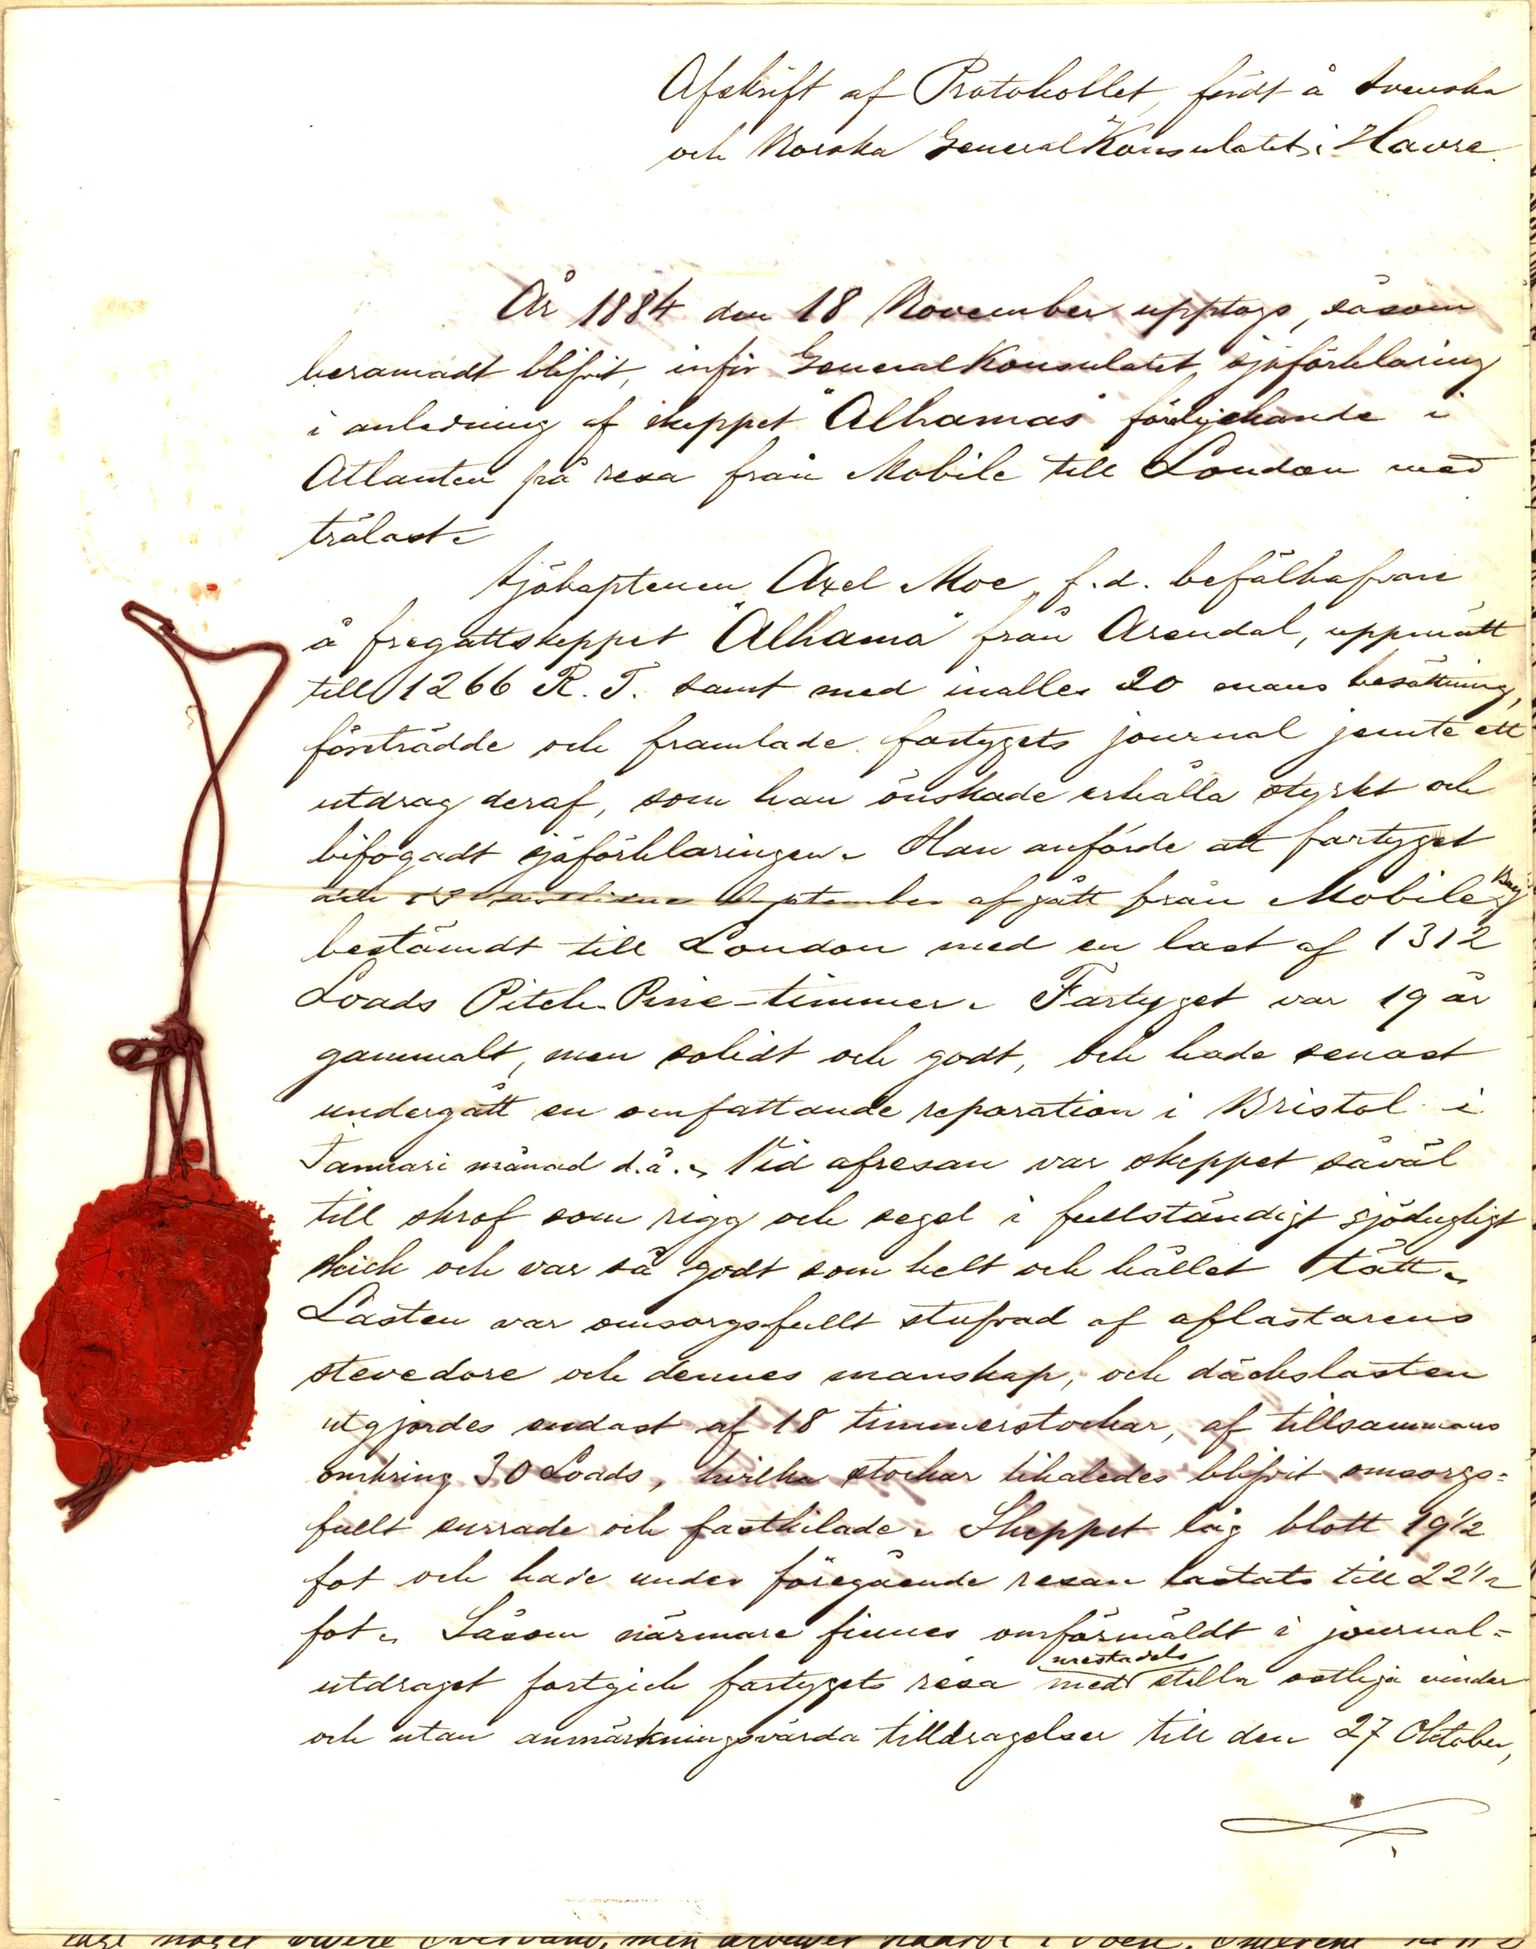 Afskrift af Protokollet, fördt å Svenska
och Norska General Konsulatet i Havre.
År 1884 den 18 November upptogs, såsom
beramadt blifvit, inför General Konsulatet sjöförklaring
i anledning af skeppet "Alhamas" förolyckande i
Atlanten på resa från Mobile till London med
trälast.
Sjökaptenen Axel Moe, f.d. befälhafvare
å fregattskeppet "Alhama" från Arendal, uppmätt
till 1266 R. T. samt med inalles 20 mans besättning,
företrädde och framlade fartygets journal jemte ett
utdrag deraf, som han önskade erhålla styrkt och
bifogadt sjöförklaringen. Han anförde att fartyget
den September afgått från Mobile Bay
bestämdt till London med en last af 1312
Loads Pitch-Pine-timmer. Fartyget var 19 år
gammalt, men solidt och godt, och hade senast
undergått en omfattande reparation i Bristol i
Januari månad d.å. Vid afresan var skeppet såväl
till skrof som rigg och segel i fullständigt sjödugligt
skick och var så godt som helt och hållet tätt.
Lasten var omsorgsfullt stufvad af aflastarens
stevedore och dennes manskap, och däckslasten
utgjordes endast af 18 timmerstockar, af tillsammans
omkring 30 Loads, hvilka stockar likaledes blifvit omsorgs=
fullt surrade och fastkilade. Skeppet låg blott 19½
fot och hade under föregående resan lastats till 22½
fot. Såsom närmare finnes omförmäldt i journal=
utdraget fortgick fartygets resa mestadels med stilla ostliga vindar
och utan anmärkningsvärda tilldragelser till den 27 Oktober,